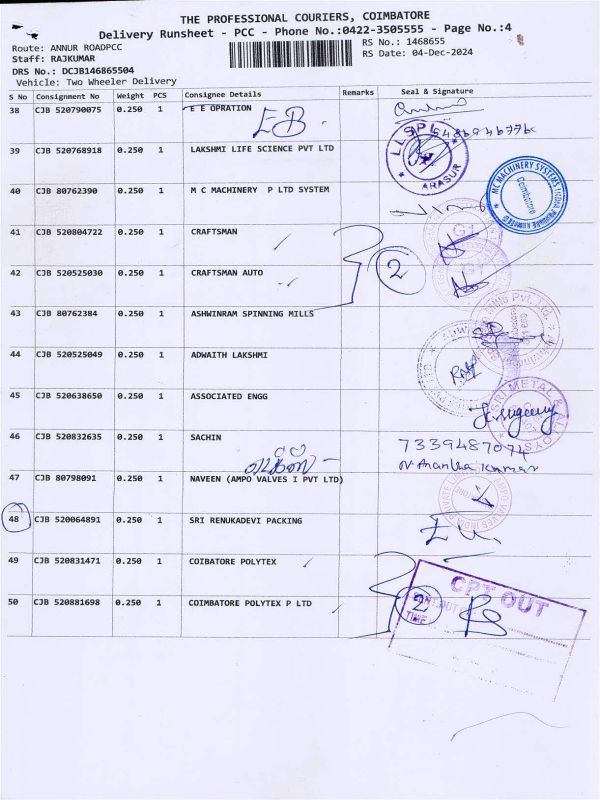 THE PROFESSIONAL COURIERS, COIMBATORE
Delivery Runsheet - PCC - Phone No.:0422-3505555 - Page No.:4
Route: ANNUR ROADPCC
RS No.: 1468655
Staff: RAJKUMAR
RS Date: 04-Dec-2024
DRS No.: DCJB146865504
Vehicle: Two Wheeler Delivery
S No Consignment No Weight PCS Consignee Details Remarks Seal & Signature
38 CJB 520790075 0.250 1 E E OPRATION
EB
39 CJB 520768918 0.250 1 LAKSHMI LIFE SCIENCE PVT LTD
LLSPL
ARASUR
40 CJB 80762390 0.250 1 M C MACHINERY P LTD SYSTEM
MC MACHINERY SYSTEMS INDIA PRIVATE LIMITED
Coimbatore
41 CJB 520804722 0.250 1 CRAFTSMAN
2
42 CJB 520525030 0.250 1 CRAFTSMAN AUTO
43 CJB 80762384 0.250 1 ASHWINRAM SPINNING MILLS
44 CJB 520525049 0.250 1 ADWAITH LAKSHMI
45 CJB 520638650 0.250 1 ASSOCIATED ENGG
46 CJB 520832635 0.250 1 SACHIN
7339487074
N Anantha Kumar
47 CJB 80798091 0.250 1 NAVEEN (AMPO VALVES I PVT LTD)
48 CJB 520064891 0.250 1 SRI RENUKADEVI PACKING
49 CJB 520831471 0.250 1 COIBATORE POLYTEX
50 CJB 520881698 0.250 1 COIMBATORE POLYTEX P LTD
2
CPT OUT
TIME